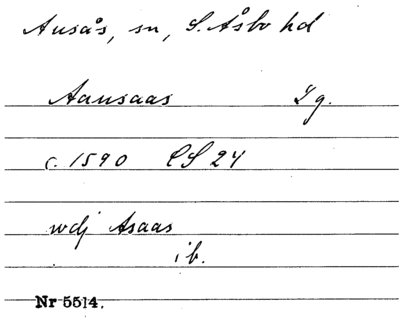 Ausås, sn, S. Åsbo hd
Aausaas Ig.
c. 1590 CS 24
udj Asaas
ib.
Nr 5514.